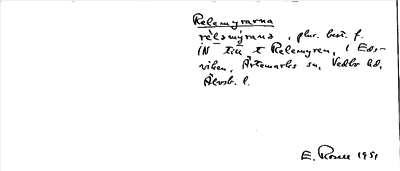 Relemyrarna
rèləmýrana, plur. best. f.
IN till t Relemyren, i Eds-
viken, Ärtemarks sn, Vedbo hd,
Älvsb. l.
E. Rosell 1951